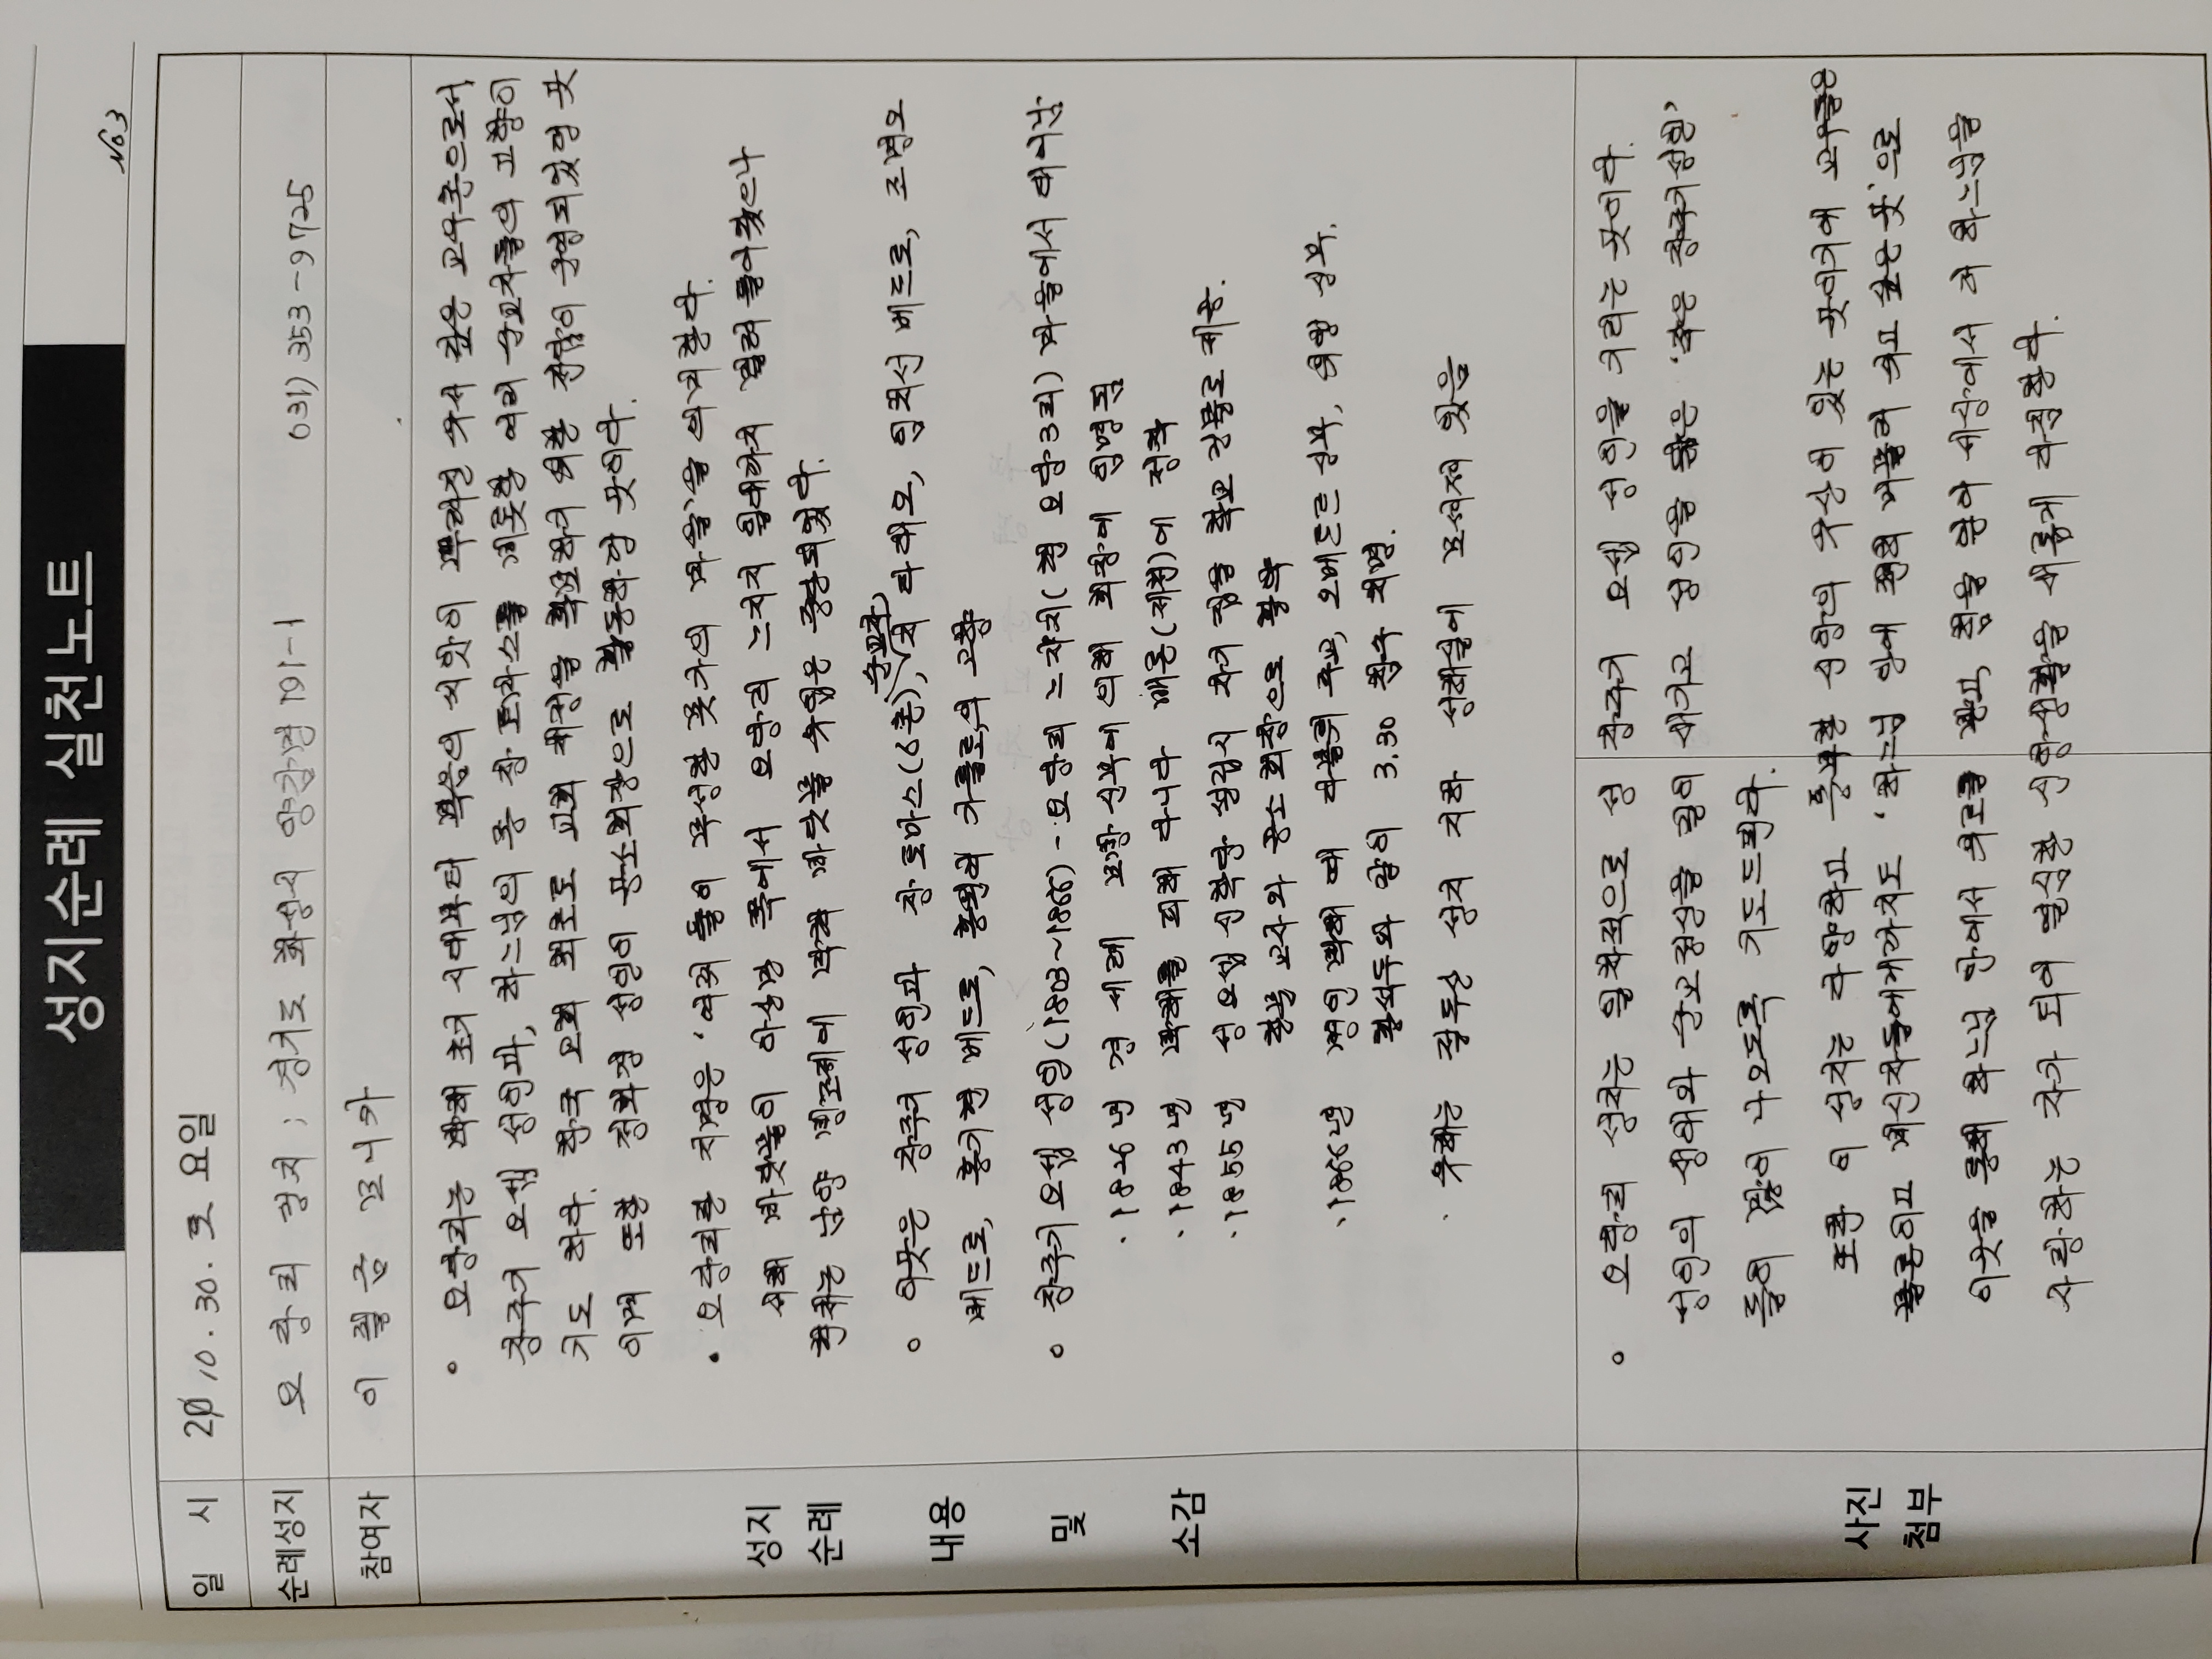 성지순례 실천노트
No 3
일 시 2010. 30. 토 요일
순례성지 요당리 성지 ; 경기도 화성시 양감면 191-1 031) 353-9725
참여자 이 금 모니카
◦ 요당리는 박해 초기 시대부터 복음의 씨앗이 뿌려진 유서 깊은 교우촌으로서,
장주기 요셉 성인과, 하느님의 종 장 토마스를 비롯한 여러 순교자들의 고향이
기도 하다. 한국 교회 최초로 교회 재정을 확보하기 위한 전답이 운영되었던 곳
이며 또한 정화경 성인이 공소회장으로 활동하던 곳이다.
• 요당리란 지명은 ‘여뀌 들이 무성한 못가의 마을’을 의미한다.
서해 바닷물이 이상면 쪽에서 요당리 느지지 일대까지 밀려 들어왔으나
현재는 남양 방조제에 막혀 바닷물 유입은 중단되었다.
순교자,
◦ 이곳은 장주기 성인과 장 토마스(6촌), 지 타대오, 임치선 베드로, 조명오
베드로, 홍기헌 베드로, 홍원여 가롤로,의 고향
◦ 장주기 요셉 성인(1803~1866) - 요당리 느지지(현 요당3리) 마을에서 태어남
· 1826년 경 세례 모방 신부에 의해 회장에 임명됨
· 1843년 박해를 피해 다니다 배론(제천)에 정착
· 1855년 성 요셉 신학당 설립시 자기 집을 학교 건물로 제공.
한문 교사와 공소 회장으로 활약
· 1866년 병인 박해 때 다블뤼 주교, 오메트르 신부, 위앵 신부,
황석두와 같이 3.30 참수 치명.
· 유해는 절두산 성지 지하 성해실에 모셔져 있음
성지
순례
내용
및
소감
◦ 요당리 성지는 일차적으로 성 장주기 요셉 성인을 기리는 곳이다.
성인의 생애와 순교정신을 깊이 새기고 성인을 닮은 ‘작은 장주기성인’
들이 많이 나오도록 기도드린다.
또한 이 성지는 다양하고 풍부한 신앙의 유산이 있는 곳이기에 교우들은
물론이고 비신자들에게까지도 ‘하느님 안에 편히 머물러 쉬고 싶은 곳’으로
이곳을 통해 하느님 안에서 위로를 받고, 힘을 얻어 세상에서 더 하느님을
사랑하는 자가 되어 열심한 신앙생활을 새롭게 다짐한다.
사진
첨부